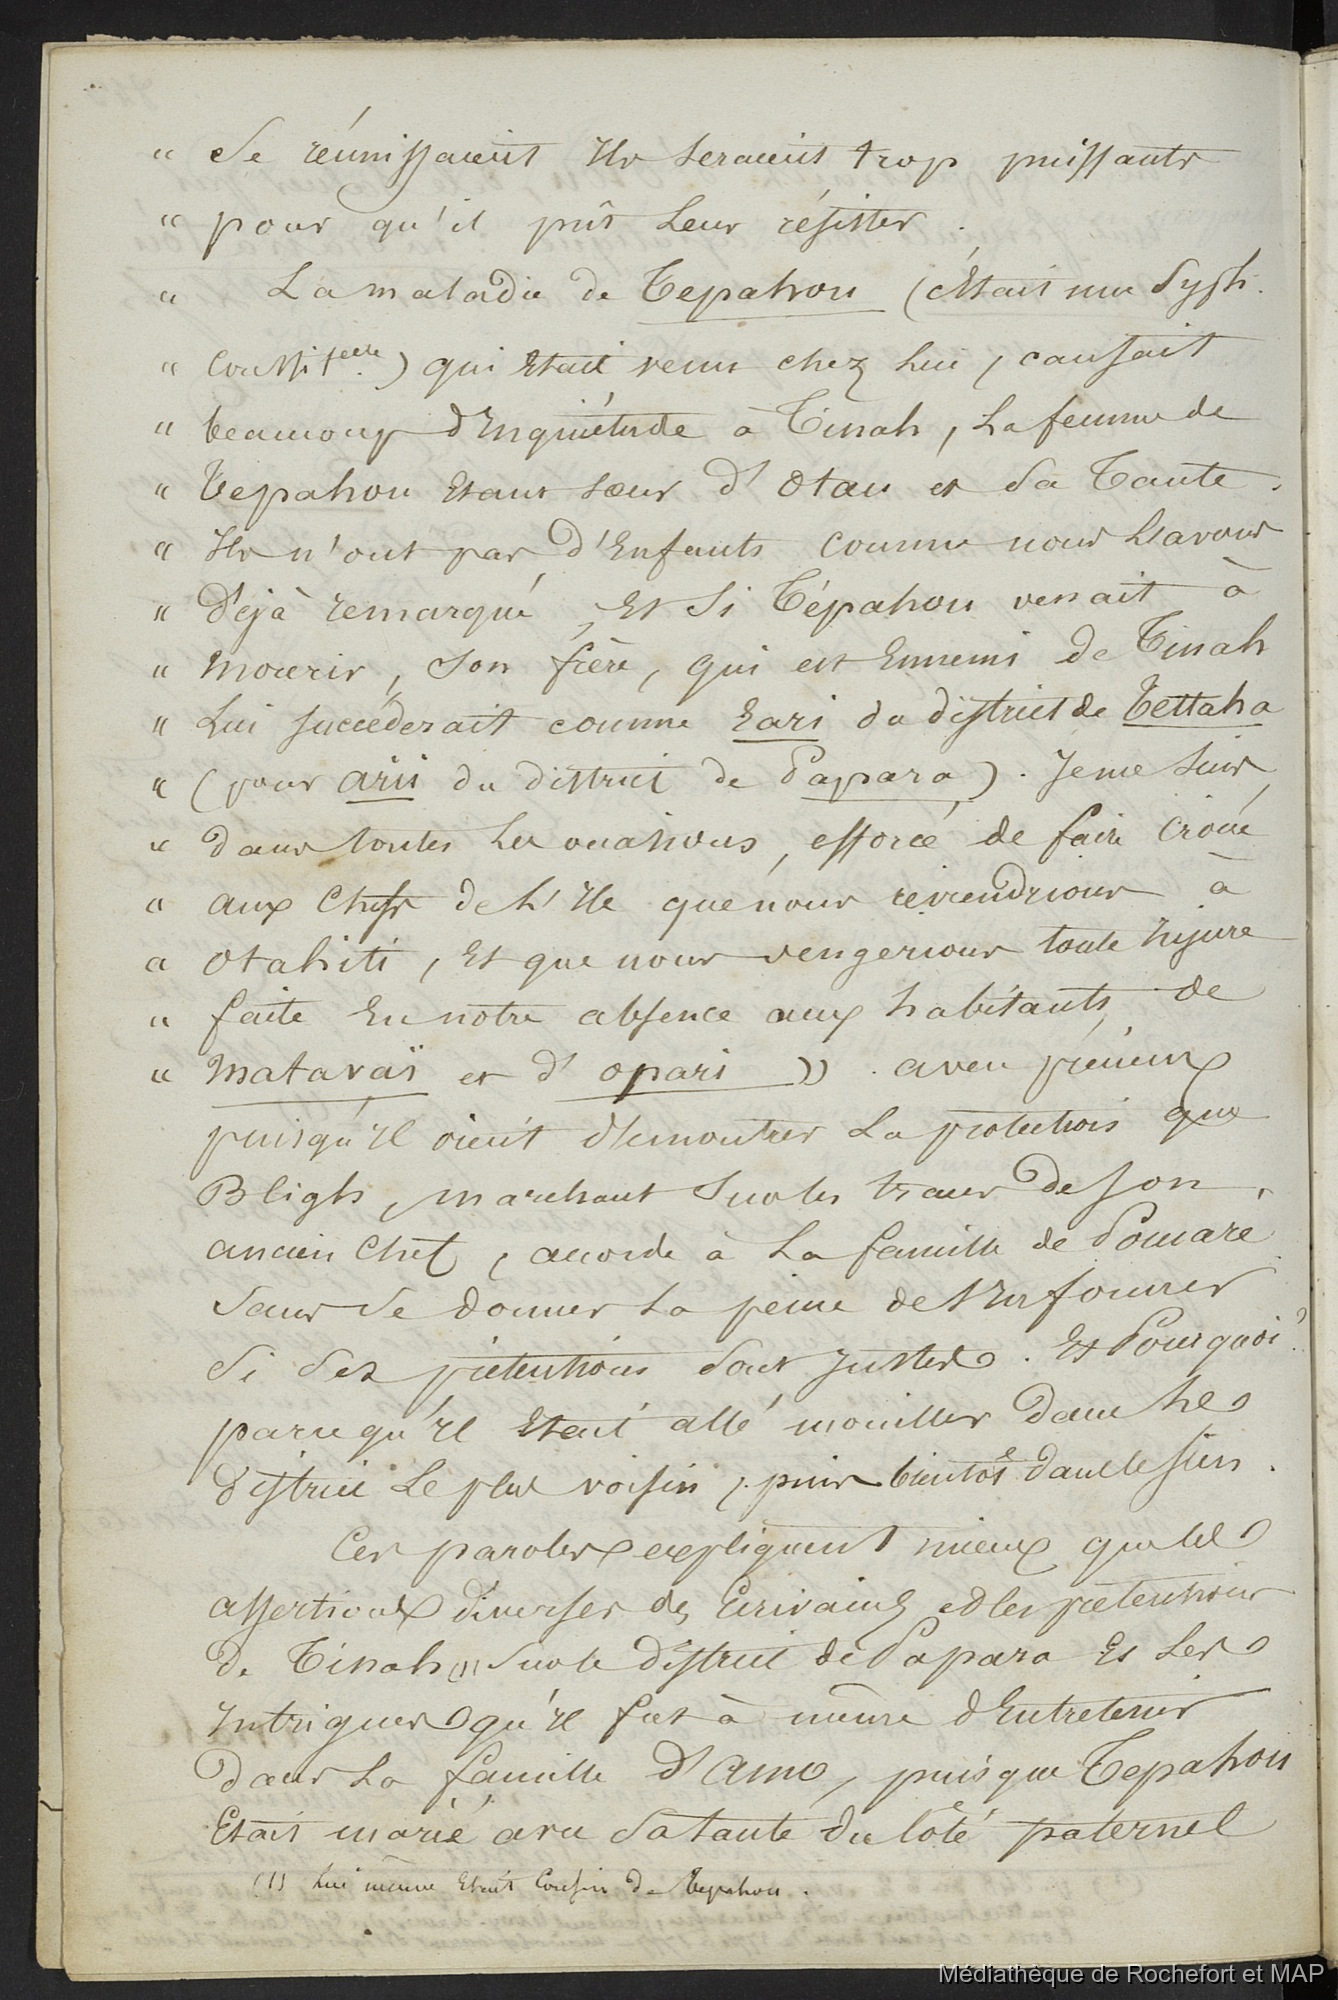 " se réunissaient ils seraient trop puissants
" pour qu'il pût leur résister.
" La maladie de Tepahou (c'était une Syph.
" ) qui était venu chez lui, causait
" beaucoup d'Inquiétude à Tinah, la femme de
" Tepahou étant sœur d'Otau et sa Tante.
" Ils n'ont pas d'Enfants comme nous l'avons
" déjà remarqué, Et si Tépahou venait à
" mourir, son frère, qui est Ennemi de Tinah
" Lui succéderait comme Eari du district de Tettaha
" (pour arii du district de Papara). Je me suis,
" dans toutes les occasions, efforcé de faire croire
" aux Chefs de l'Ile que nous reviendrions à
" Otahiti, Et que nous vengerions toute Injure
" faite En notre absence aux habitants de
" Mataraï et d'Opari )). aveu précieux
puisqu'Il vient démontrer La protection que
Bligh, marchant sur les traces de son
ancien Chef, accorde à La famille de Pomare
sans se donner La peine de s'Informer
si ses prétentions sont Justes. Et Pourquoi?
parcequ'Il Etait allé mouiller dans le
district Le plus voisin, puis bientôt dans le sien.
Ces paroles expliquent mieux que les
assertions diverses des Ecrivains et les prétentions
de Tinah (1) sur le district de Papara Et Les
Intrigues qu'Il fut à même d'Entretenir
dans La famille d'Amo, puisque Tepahou
Etait marié avec sa tante du Côté paternel
(1) Lui même Etait Cousin de Tepahou.
Médiathèque de Rochefort et MAP